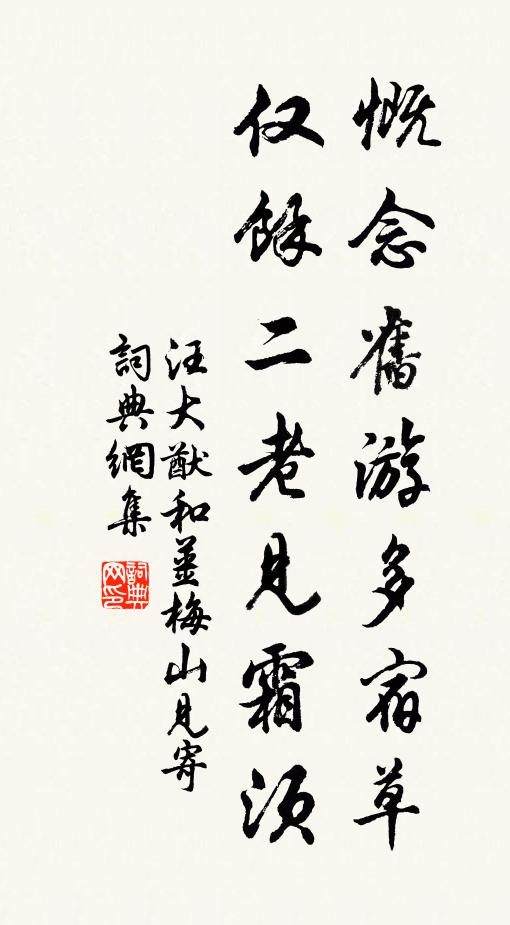 慨念舊游多宿草
仅餘二老見霜須
汪大猷和姜梅山見寄
詞典網集
詞典网印